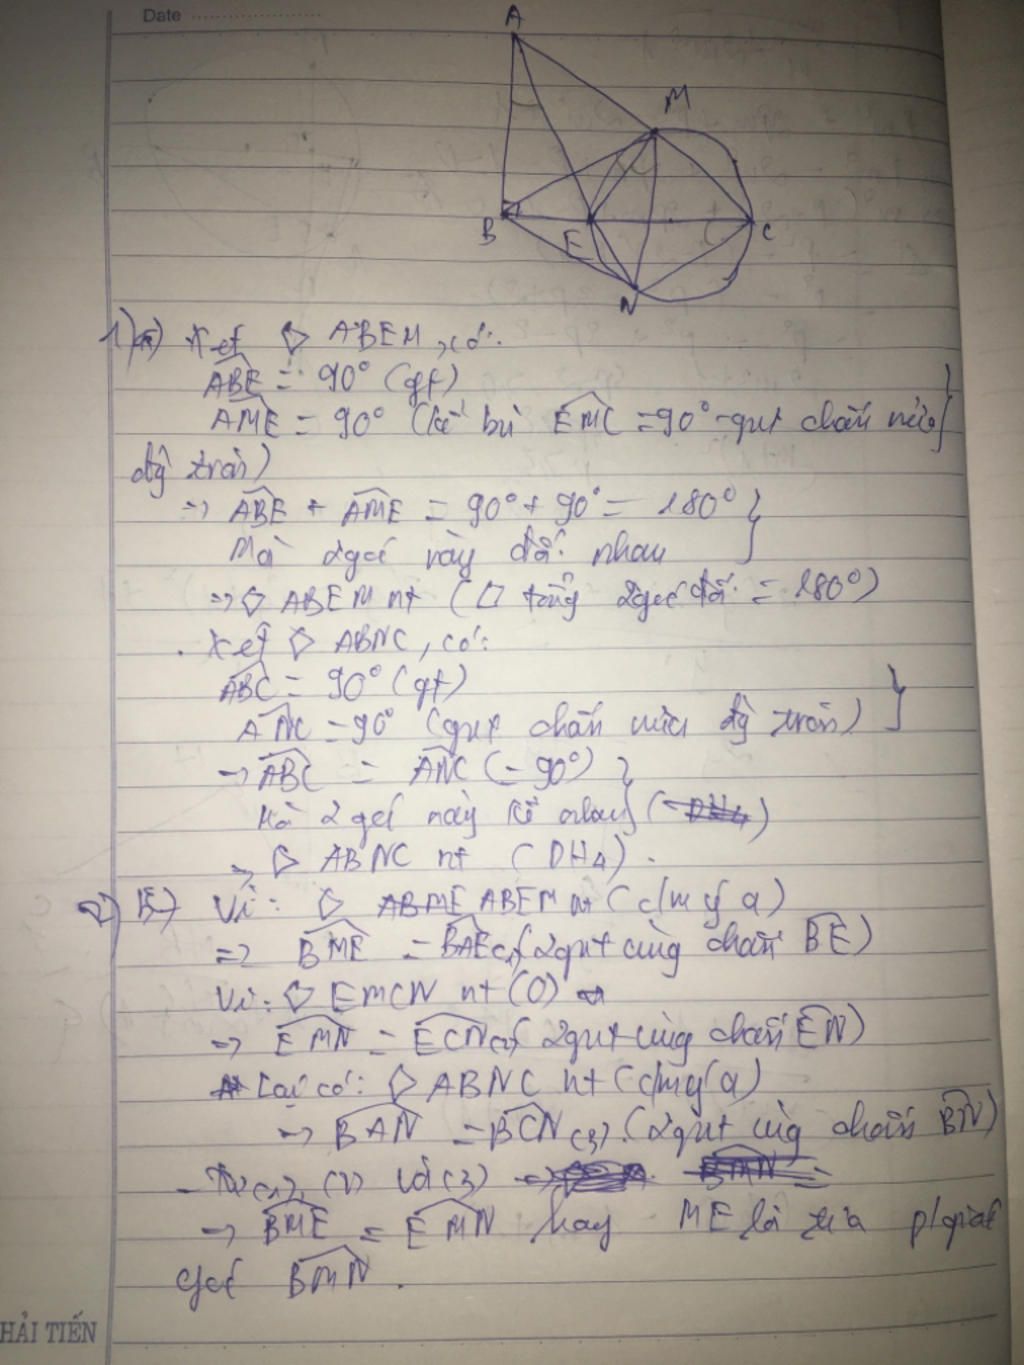 Date
A
M
B
E
C
N
1) a) Xét ◇ ABEM, có:
ABE = 90° (gt)
AME = 90° (kề bù EMC = 90° - gnt chắn nửa
đg tròn)
=> ABE + AME = 90° + 90° = 180°
Mà 2 góc này đối nhau
=> ◇ ABEM nt (◇ tổng 2 góc đối = 180°)
. Xét ◇ ABNC, có:
ABC = 90° (gt)
ANC = 90° (gnt chắn nửa đg tròn)
-> ABC = ANC (= 90°)
Mà 2 góc này kề nhau
-> ◇ ABNC nt (DH4).
2) b) Vì: ◇ ABEM nt (c/m ý a)
=> BME = BAE (1) (2 gnt cùng chắn BE)
Vì: ◇ EMCN nt (O)
-> EMN = ECN (2) (2 gnt cùng chắn EN)
Lại có: ◇ ABNC nt (c/m ý a)
-> BAN = BCN (3). (2 gnt cùng chắn BN)
- Từ (1), (2) và (3)
-> BME = EMN hay ME là tia p/giác
góc BMN.
HẢI TIẾN